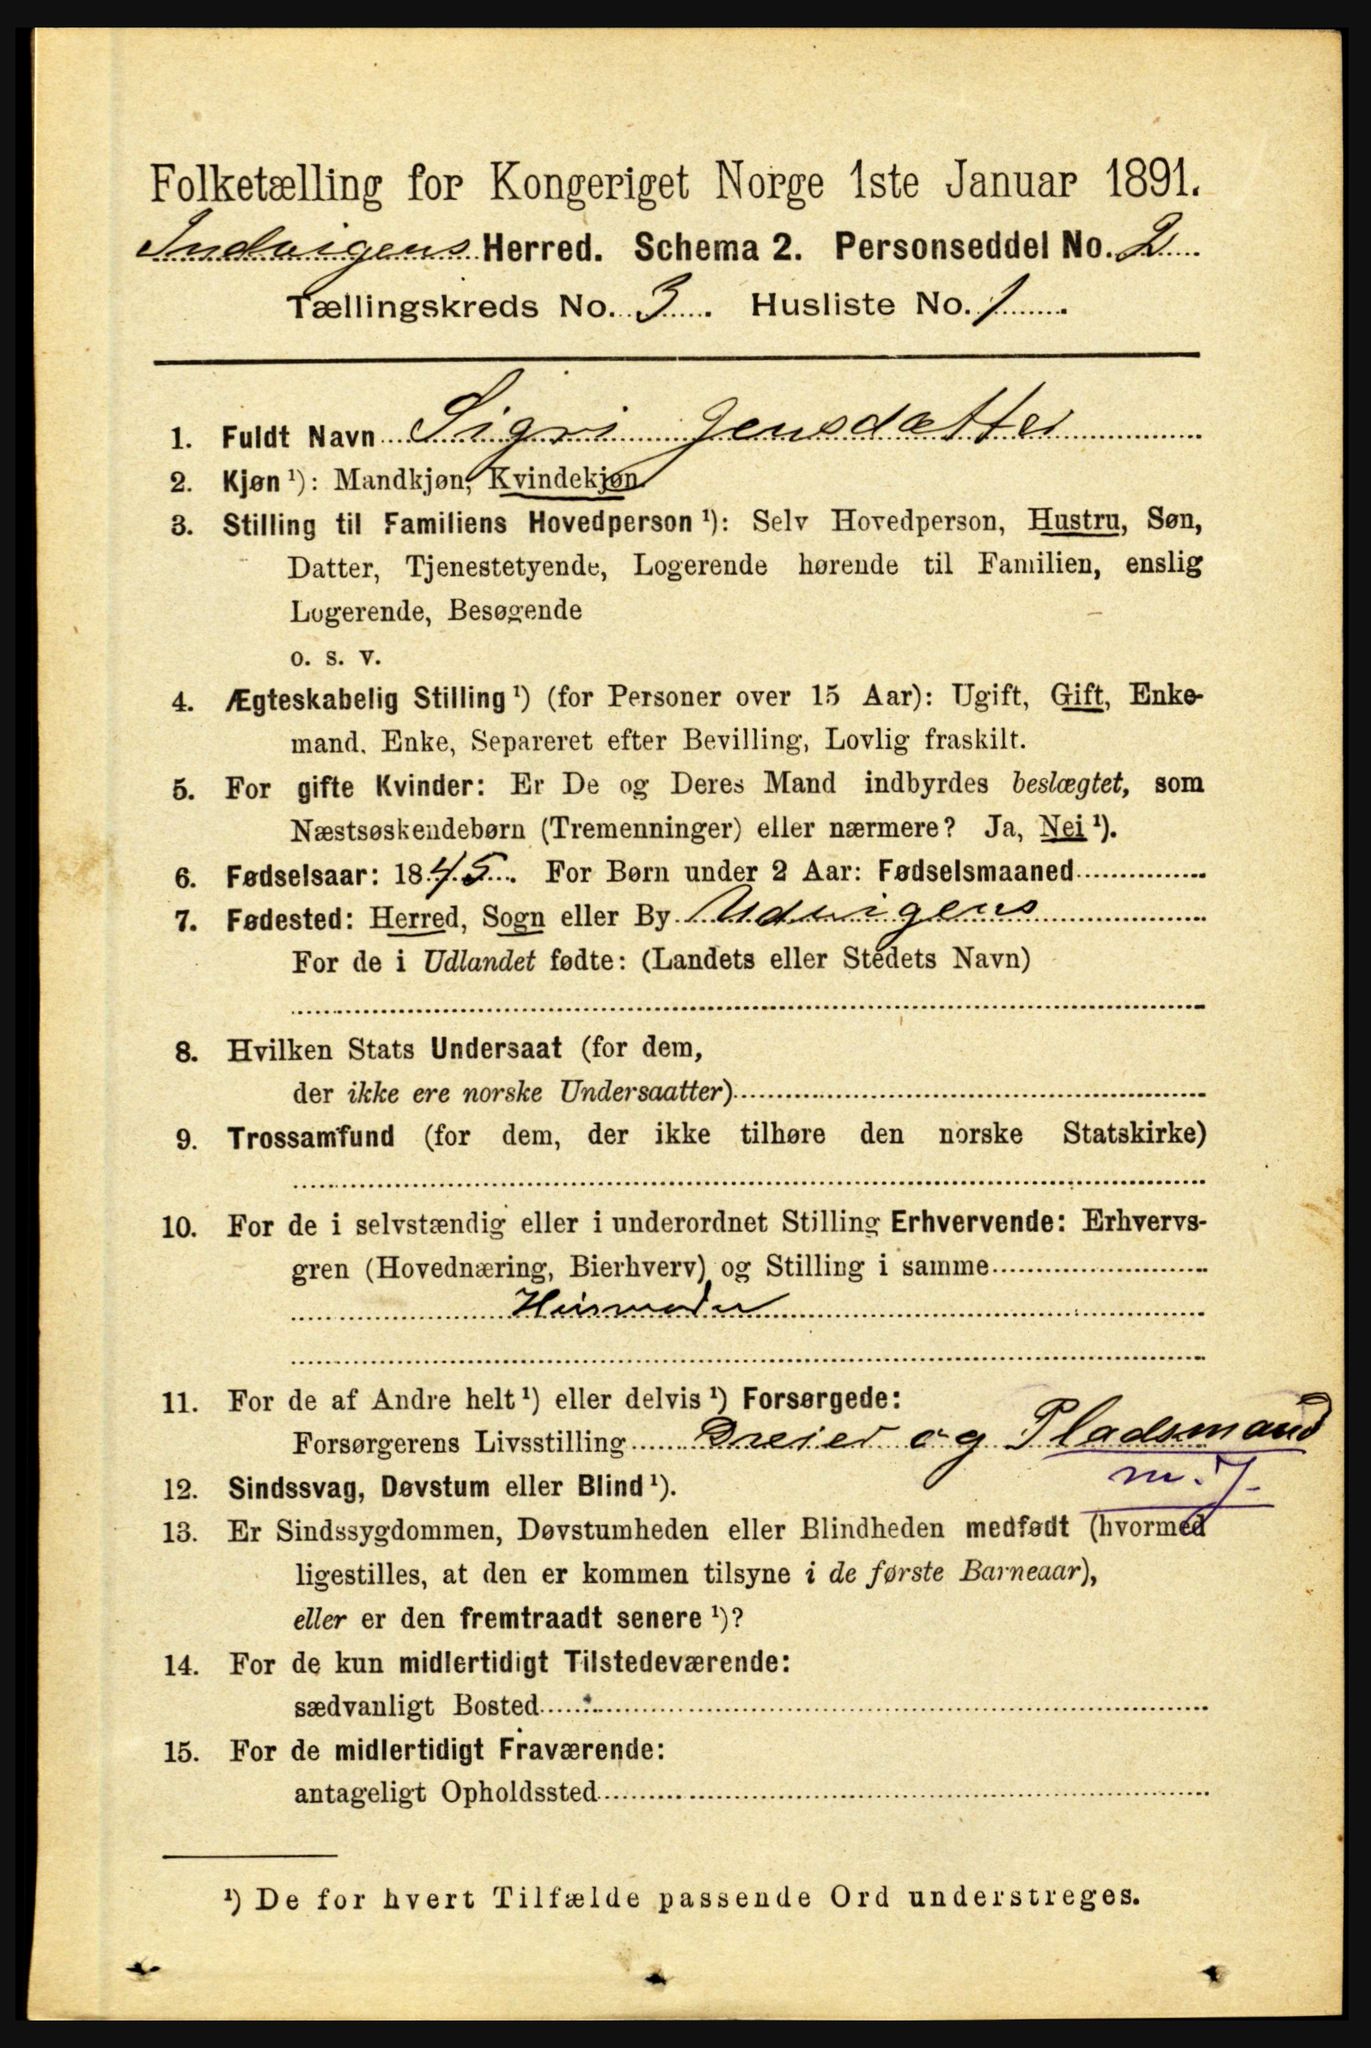 Folketælling for Kongeriget Norge 1ste Januar 1891.
Indvigens Herred. Schema 2. Personseddel No. 2
Tællingskreds No. 3. Husliste No. 1
1. Fuldt Navn Sigri Jensdatter
2. Kjøn ¹): Mandkjøn, Kvindekjøn.
3. Stilling til Familiens Hovedperson ¹): Selv Hovedperson, Hustru, Søn,
Datter, Tjenestetyende, Logerende hørende til Familien, enslig
Logerende, Besøgende
o. s. v.
4. Ægteskabelig Stilling ¹) (for Personer over 15 Aar): Ugift, Gift, Enke-
mand, Enke, Separeret efter Bevilling, Lovlig fraskilt.
5. For gifte Kvinder: Er De og Deres Mand indbyrdes beslægtet, som
Næstsøskendebørn (Tremenninger) eller nærmere? Ja, Nei ¹).
6. Fødselsaar: 1845. For Børn under 2 Aar: Fødselsmaaned
7. Fødested: Herred, Sogn eller By Udvigens
For de i Udlandet fødte: (Landets eller Stedets Navn)
8. Hvilken Stats Undersaat (for dem,
der ikke ere norske Undersaatter)
9. Trossamfund (for dem, der ikke tilhøre den norske Statskirke)
10. For de i selvstændig eller i underordnet Stilling Erhvervende: Erhvervs-
gren (Hovednæring, Bierhverv) og Stilling i samme
Husmoder
11. For de af Andre helt ¹) eller delvis ¹) Forsørgede:
Forsørgerens Livsstilling Dreier og Pladsmand
m. J.
12. Sindssvag, Døvstum eller Blind ¹).
13. Er Sindssygdommen, Døvstumheden eller Blindheden medfødt (hvormed
ligestilles, at den er kommen tilsyne i de første Barneaar),
eller er den fremtraadt senere ¹)?
14. For de kun midlertidigt Tilstedeværende:
sædvanligt Bosted
15. For de midlertidigt Fraværende:
antageligt Opholdssted
¹) De for hvert Tilfælde passende Ord understreges.